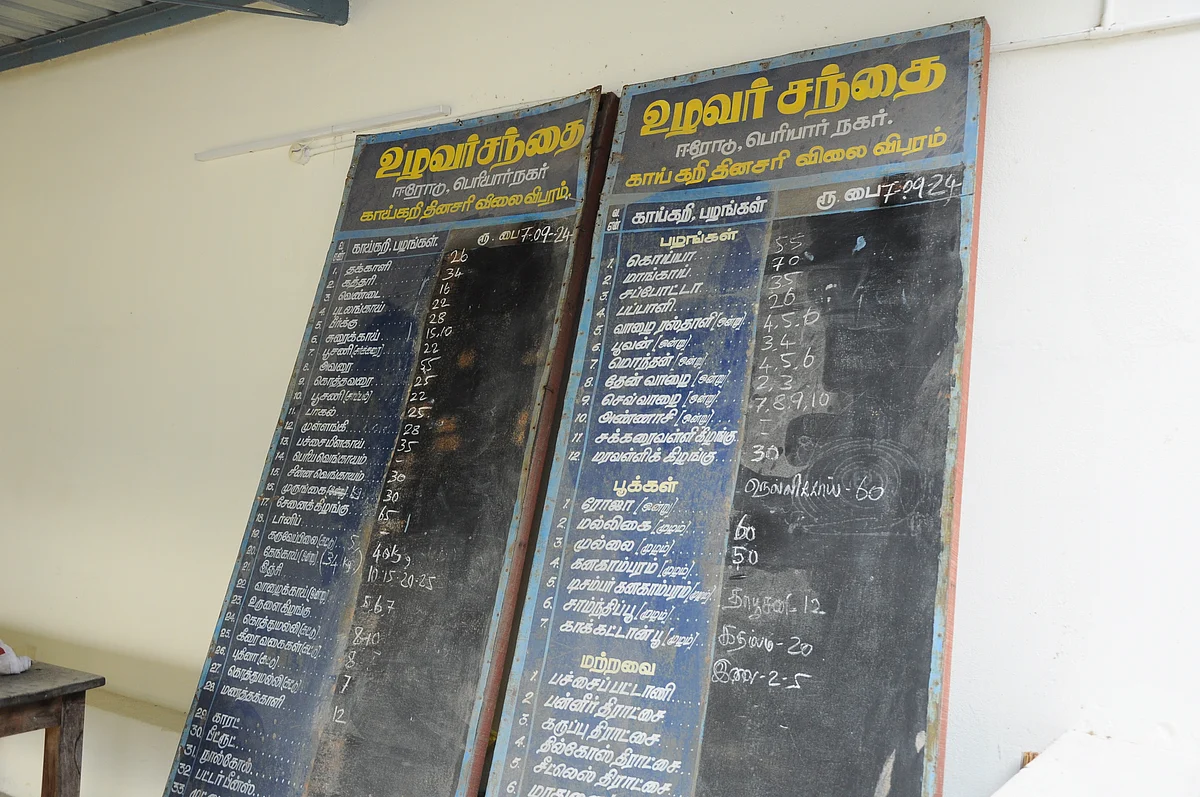 உழவர் சந்தை
ஈரோடு, பெரியார் நகர்
காய்கறி தினசரி விலை விபரம்.
காய்கறி, பழங்கள். ரூ. பை 7-09-24
1. தக்காளி 26
2. கத்தரி 34
3. வெண்டை 16
4. புடலங்காய் 22
5. பீர்க்கு 28
6. சுரைக்காய் 15,10
7. பூசணி 22
8. அவரை 55
9. கொத்தவரை 25
10. பூசணி 22
11. பாகல் 25
12. முள்ளங்கி 28
13. பச்சைமிளகாய் 35
14. பெரியவெங்காயம் -
15. சின்னவெங்காயம் 30
16. முருங்கை 30
17. சேனைக்கிழங்கு 65
18. டர்னிப்
19. கருவேப்பிலை
20. தேங்காய் (ஒன்று)
21. இஞ்சி
22. வாழைக்காய் (ஒன்று)
23. உருளைகிழங்கு
24. கொத்துமல்லி
25. கீரை வகைகள்
26. புதினா
27. கொத்துமல்லி
28. மணத்தக்காளி
29. காரட்
30. பீட்ரூட்
31. நூல்கோல்
32. பட்டர் பீன்ஸ்
33.
உழவர் சந்தை
ஈரோடு, பெரியார் நகர்.
காய் கறி தினசரி விலை விபரம்
வ. எண் காய்கறி, பழங்கள் ரூ. பை 7-09-24
பழங்கள்
1. கொய்யா 55
2. மாங்காய் 70
3. சப்போட்டா 35
4. பப்பாளி 26
5. வாழை ரஸ்தாளி (ஒன்று) 4.5.6
6. பூவன் (ஒன்று) 34
7. மொந்தன் (ஒன்று) 4,5.6
8. தேன் வாழை (ஒன்று) 2,3
9. செவ்வாழை (ஒன்று) 7,8,9,10
10. அண்ணாசி (ஒன்று) -
11. சக்கரைவள்ளி கிழங்கு -
12. மரவள்ளிக் கிழங்கு 30
நெல்லிக்காய் - 60
பூக்கள்
1. ரோஜா (ஒன்று)
2. மல்லிகை (முழம்) 60
3. முல்லை (முழம்) 50
4. கனகாம்பரம் (முழம்)
5. டிசம்பர் கனகாம்பரம் (முழம்)
6. சாம்ந்திப்பூ (முழம்)
7. காக்கட்டான் பூ (முழம்)
மற்றவை
1. பச்சைப் பட்டாணி
2. பன்னீர் திராட்சை
3. கருப்பு திராட்சை
4. தில்கோஸ் திராட்சை
5. சீட்லெஸ் திராட்சை
6.